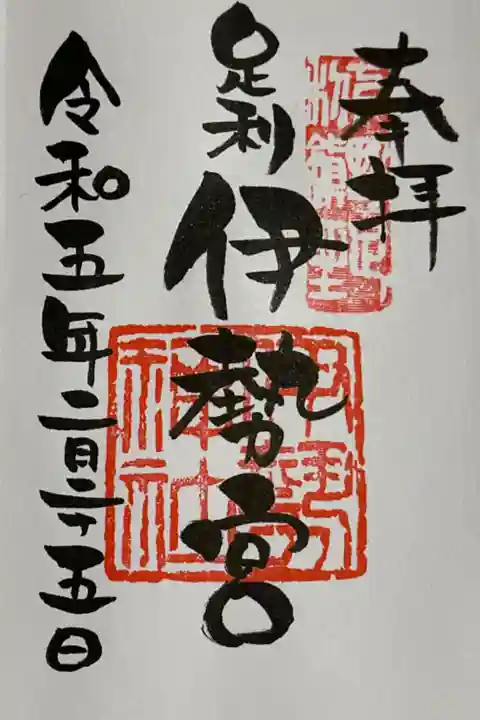 奉拝
足利
伊勢宮
伊勢神社
令和五年二月二十五日